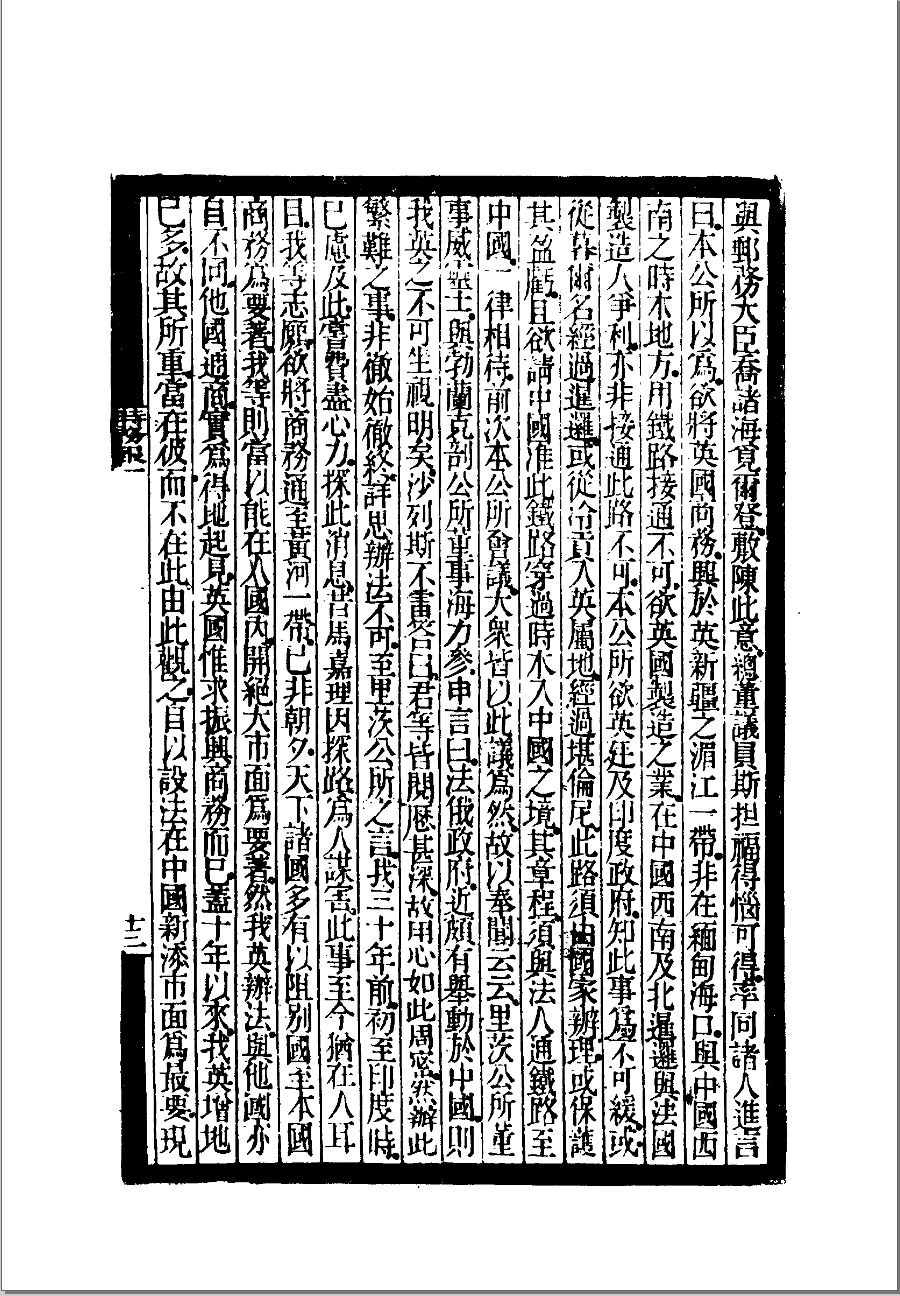 與郵務大臣喬諸海覓爾登敷陳此意總董議員斯担福得惱可得率同諸人進言
曰本公所以為欲將英國商務興於英新疆之湄江一帶非在緬甸海口與中國西
南之時本地方用鐵路接通不可欲英國製造之業在中國西南及北暹邏與法國
製造人爭利亦非接通此路不可本公所欲英廷及印度政府知此事為不可緩或
從暮爾名經過暹邏或從冷貢入英屬地經過堪倫尼此路須由國家辦理或保護
其盈虧且欲請中國准此鐵路穿過時本入中國之境其章程須與法人通鐵路至
中國一律相待前次本公所會議大衆皆以此議為然故以奉聞云云里茨公所董
事威靈士與勃蘭克剖公所董事海力參申言曰法俄政府近頗有舉動於中國則
我英之不可坐視明矣沙列斯不畫答曰君等皆閱歷甚深故用心如此周密然辦此
繁難之事非徹始徹終詳思辦法不可至里茨公所之言我三十年前初至印度時
已慮及此嘗費盡心力探此消息昔馬嘉理因探路為人謀害此事至今猶在人耳
目我等志願欲將商務通至黃河一帶已非朝夕天下諸國多有以阻別國至本國
商務為要著我等則當以能在人國內開絕大市面為要著然我英辦法與他國亦
自不同他國通商實為得地起見英國惟求振興商務而已蓋十年以來我英增地
已多故其所重當在彼而不在此由此觀之自以設法在中國新添市面為最要現
時務報
十二